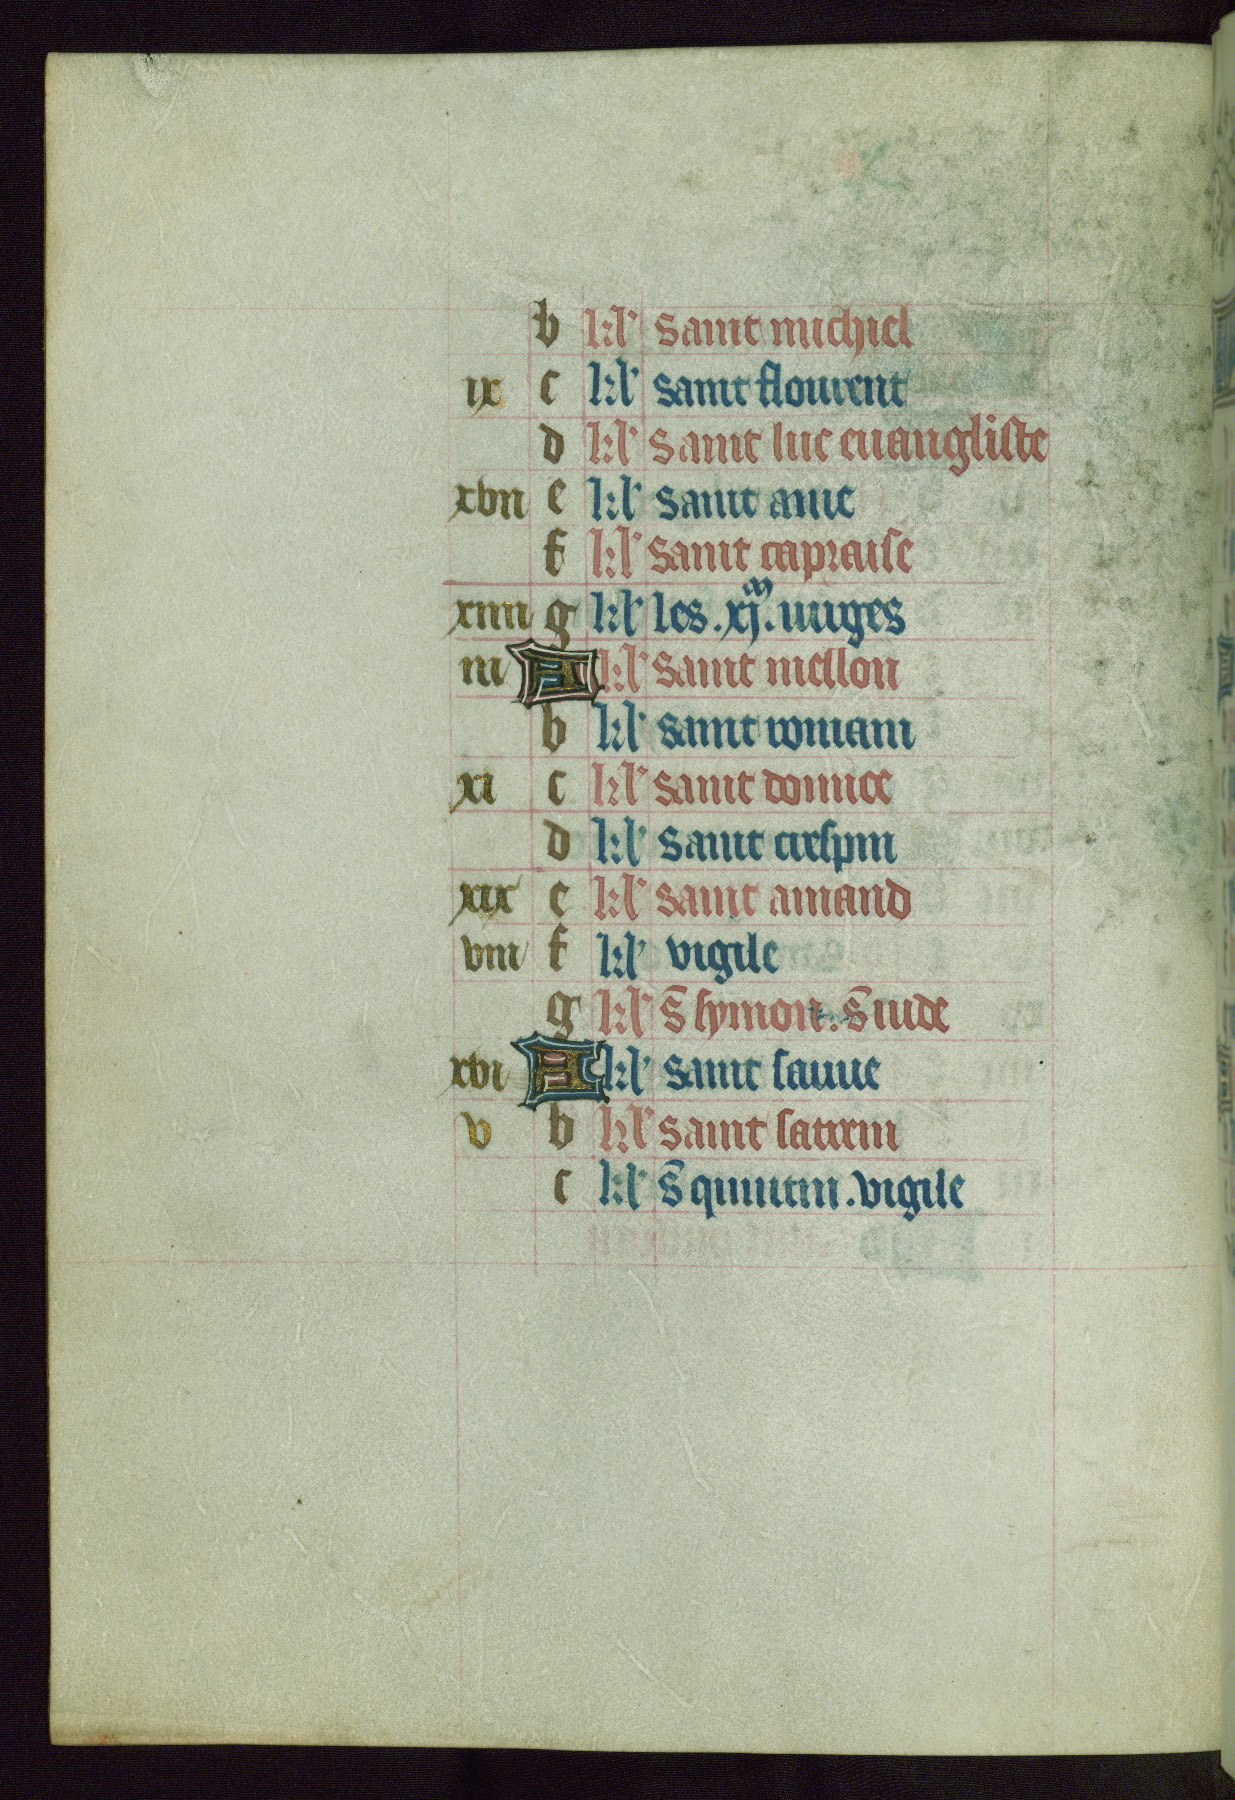 b kl' Saint michiel
ix c kl' saint flourent
d kl' Saint luc euangliste
xvii e kl' Saint auie
f kl' Saint capraise
xiiii g kl' les .xjM. uirges
iii A kl' Saint mellon
b kl' Saint romain
xi c kl' Saint domice
d kl' Saint crespin
xix e kl' Saint amand
viii f kl' vigile
g kl' S̄ symon. S̄ iude
xvi A kl' Saint sauue
v b kl' Saint saturin
c kl' S̄ quintin .vigile